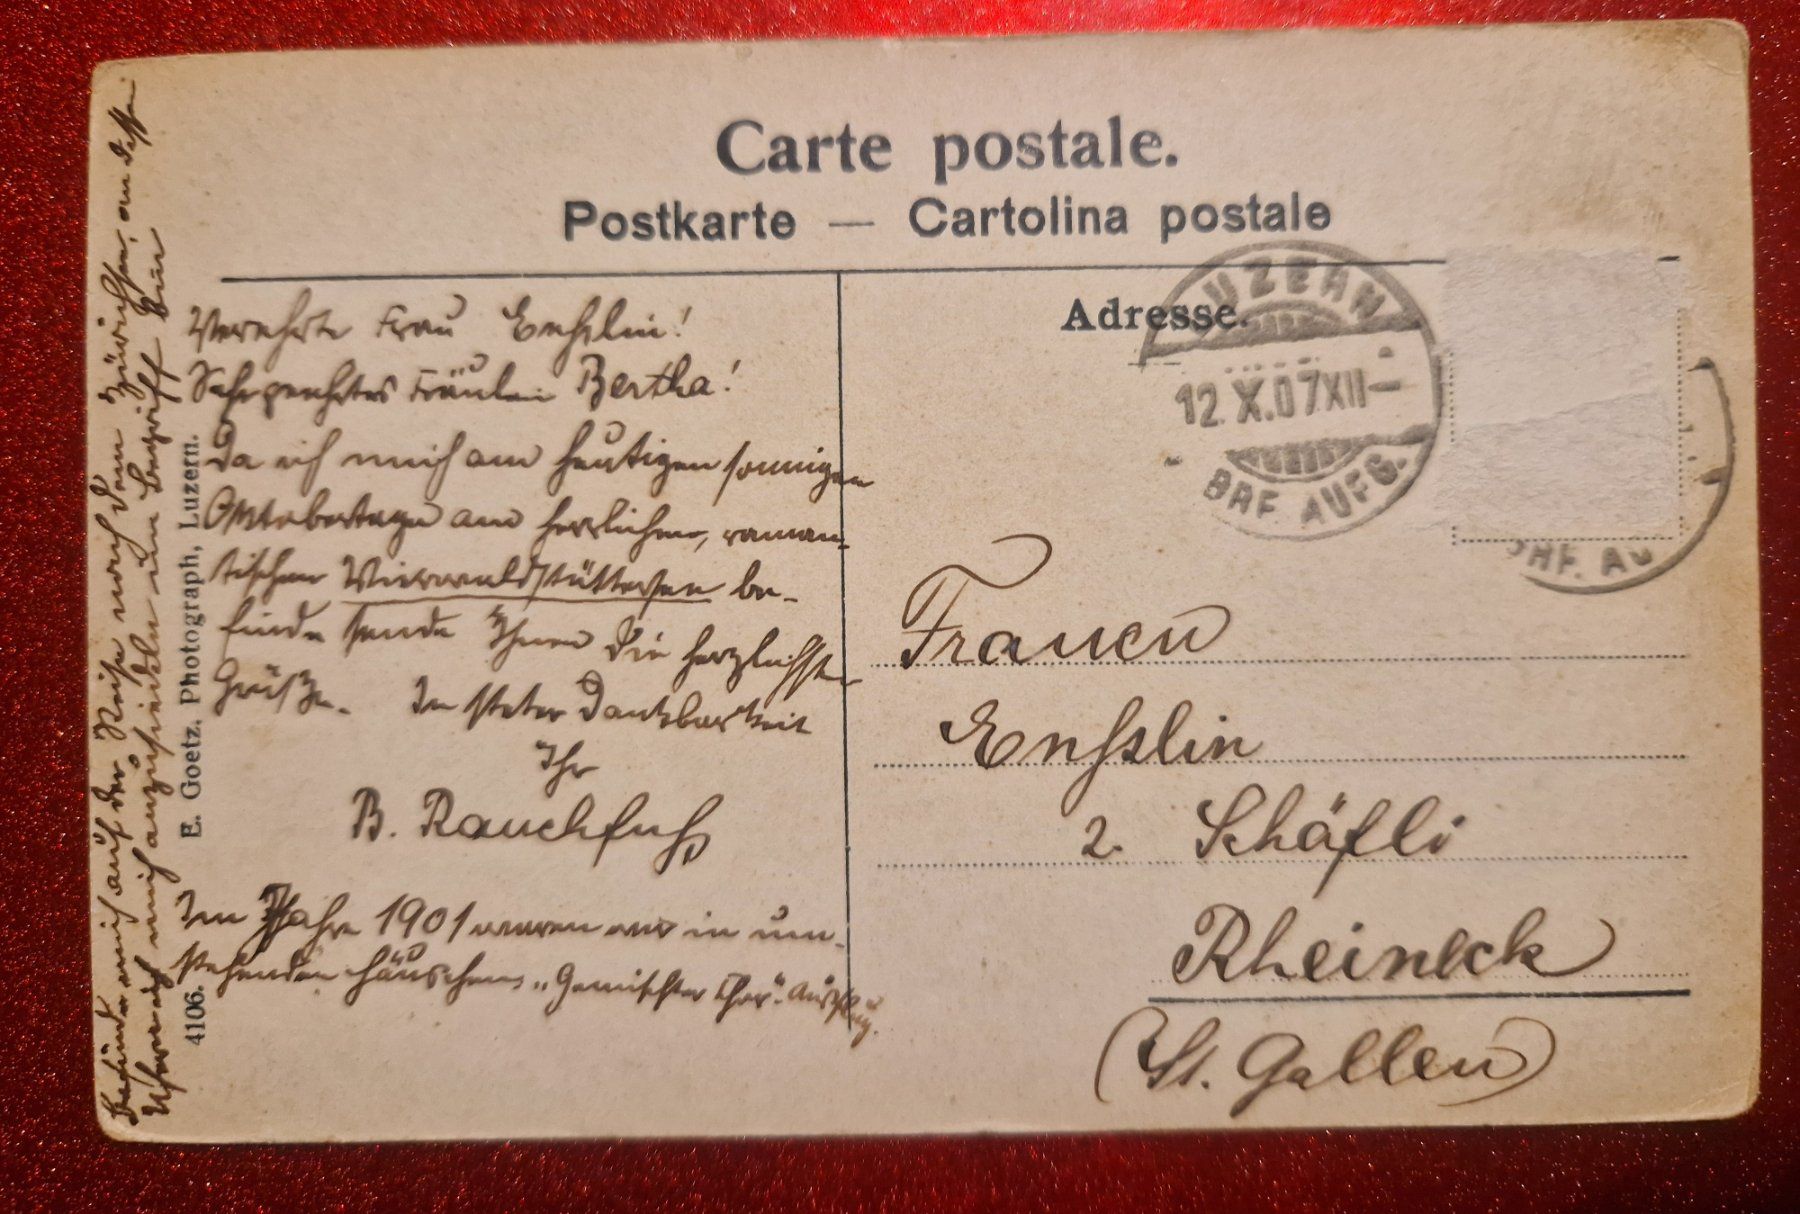 Carte postale.
Postkarte — Cartolina postale
Adresse.
LUZERN
12.X.07.XII—
BRF. AUFG.
BRF. AU
Verehrte Frau Enßlin!
Sehr geehrtes Fräulein Bertha!
Da ich mich am heutigen sonnigen
Oktobertage am herrlichen, roman-
tischen Vierwaldstättersee be-
finde sende Ihnen die herzlichsten
Grüße. In steter Dankbarkeit
Ihr
B. Rauchfuß
Im Jahre 1901 waren wir in um-
stehenden Häuschen "Gemischter Chor" Ausflug.
Befinde mich auf der Reise nach dem Zürichsee, an dessen
Ufern ich mich anzusiedeln im Begriff bin
E. Goetz, Photograph, Luzern.
4106.
Frauen
Enßlin
z. Schäfli
Rheineck
(St. Gallen)